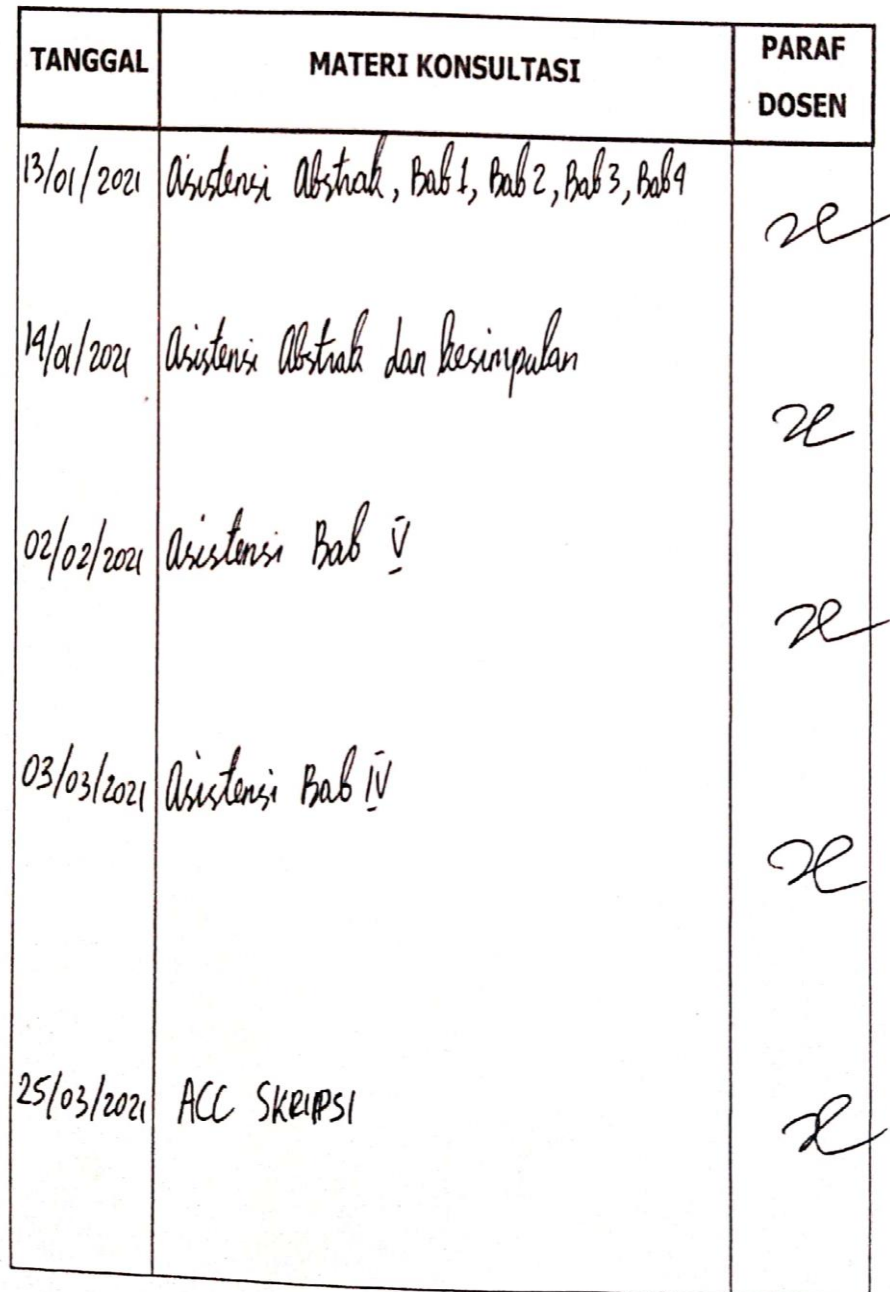 TANGGAL MATERI KONSULTASI PARAF DOSEN
13/01/2021 Asistensi Abstrak, Bab 1, Bab 2, Bab 3, Bab 4
19/01/2021 Asistensi Abstrak dan kesimpulan
02/02/2021 Asistensi Bab V
03/03/2021 Asistensi Bab IV
25/03/2021 ACC SKRIPSI